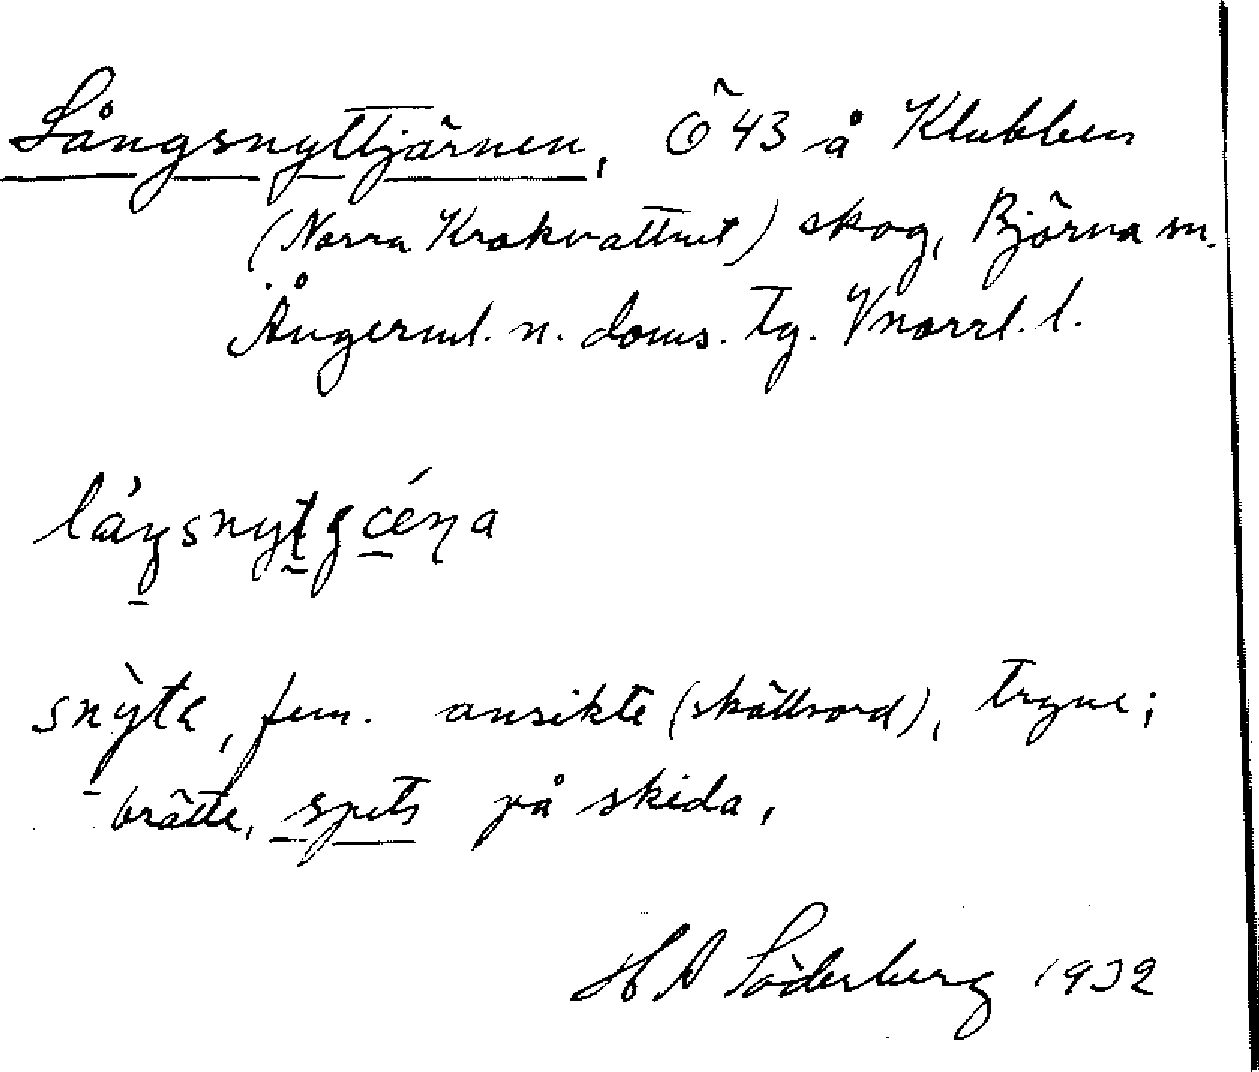 Långsnyttjärnen, Ö 43 å Klubben
(Norra Krokvattnet) skog, Björna sn.
Ångerml. n. doms. tg. Vnorrl. l.
snỳte, fem. ansikte (skällsord), tryne;
brätte, spets på skida,
H A Söderberg 1932